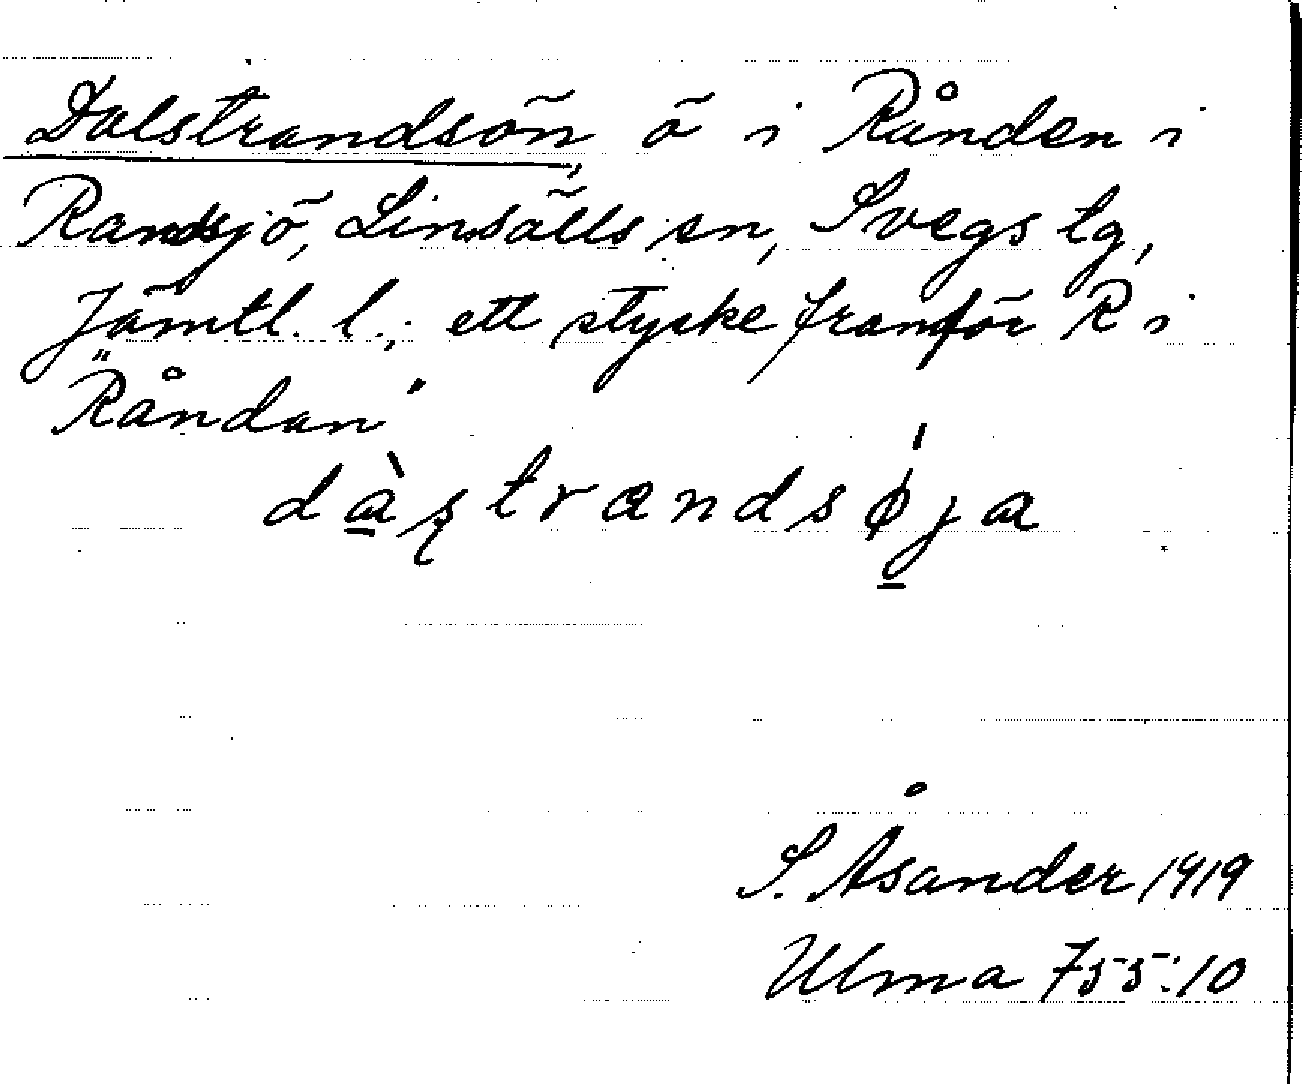 Dalstrandsön, ö i Rånden i
Randsjö, Linsälls sn, Svegs tg,
Jämtl. l.; ett stycke framför R i
"Råndan"
dàʂtrandsøja
S. Åsander 1919
Ulma 755:10